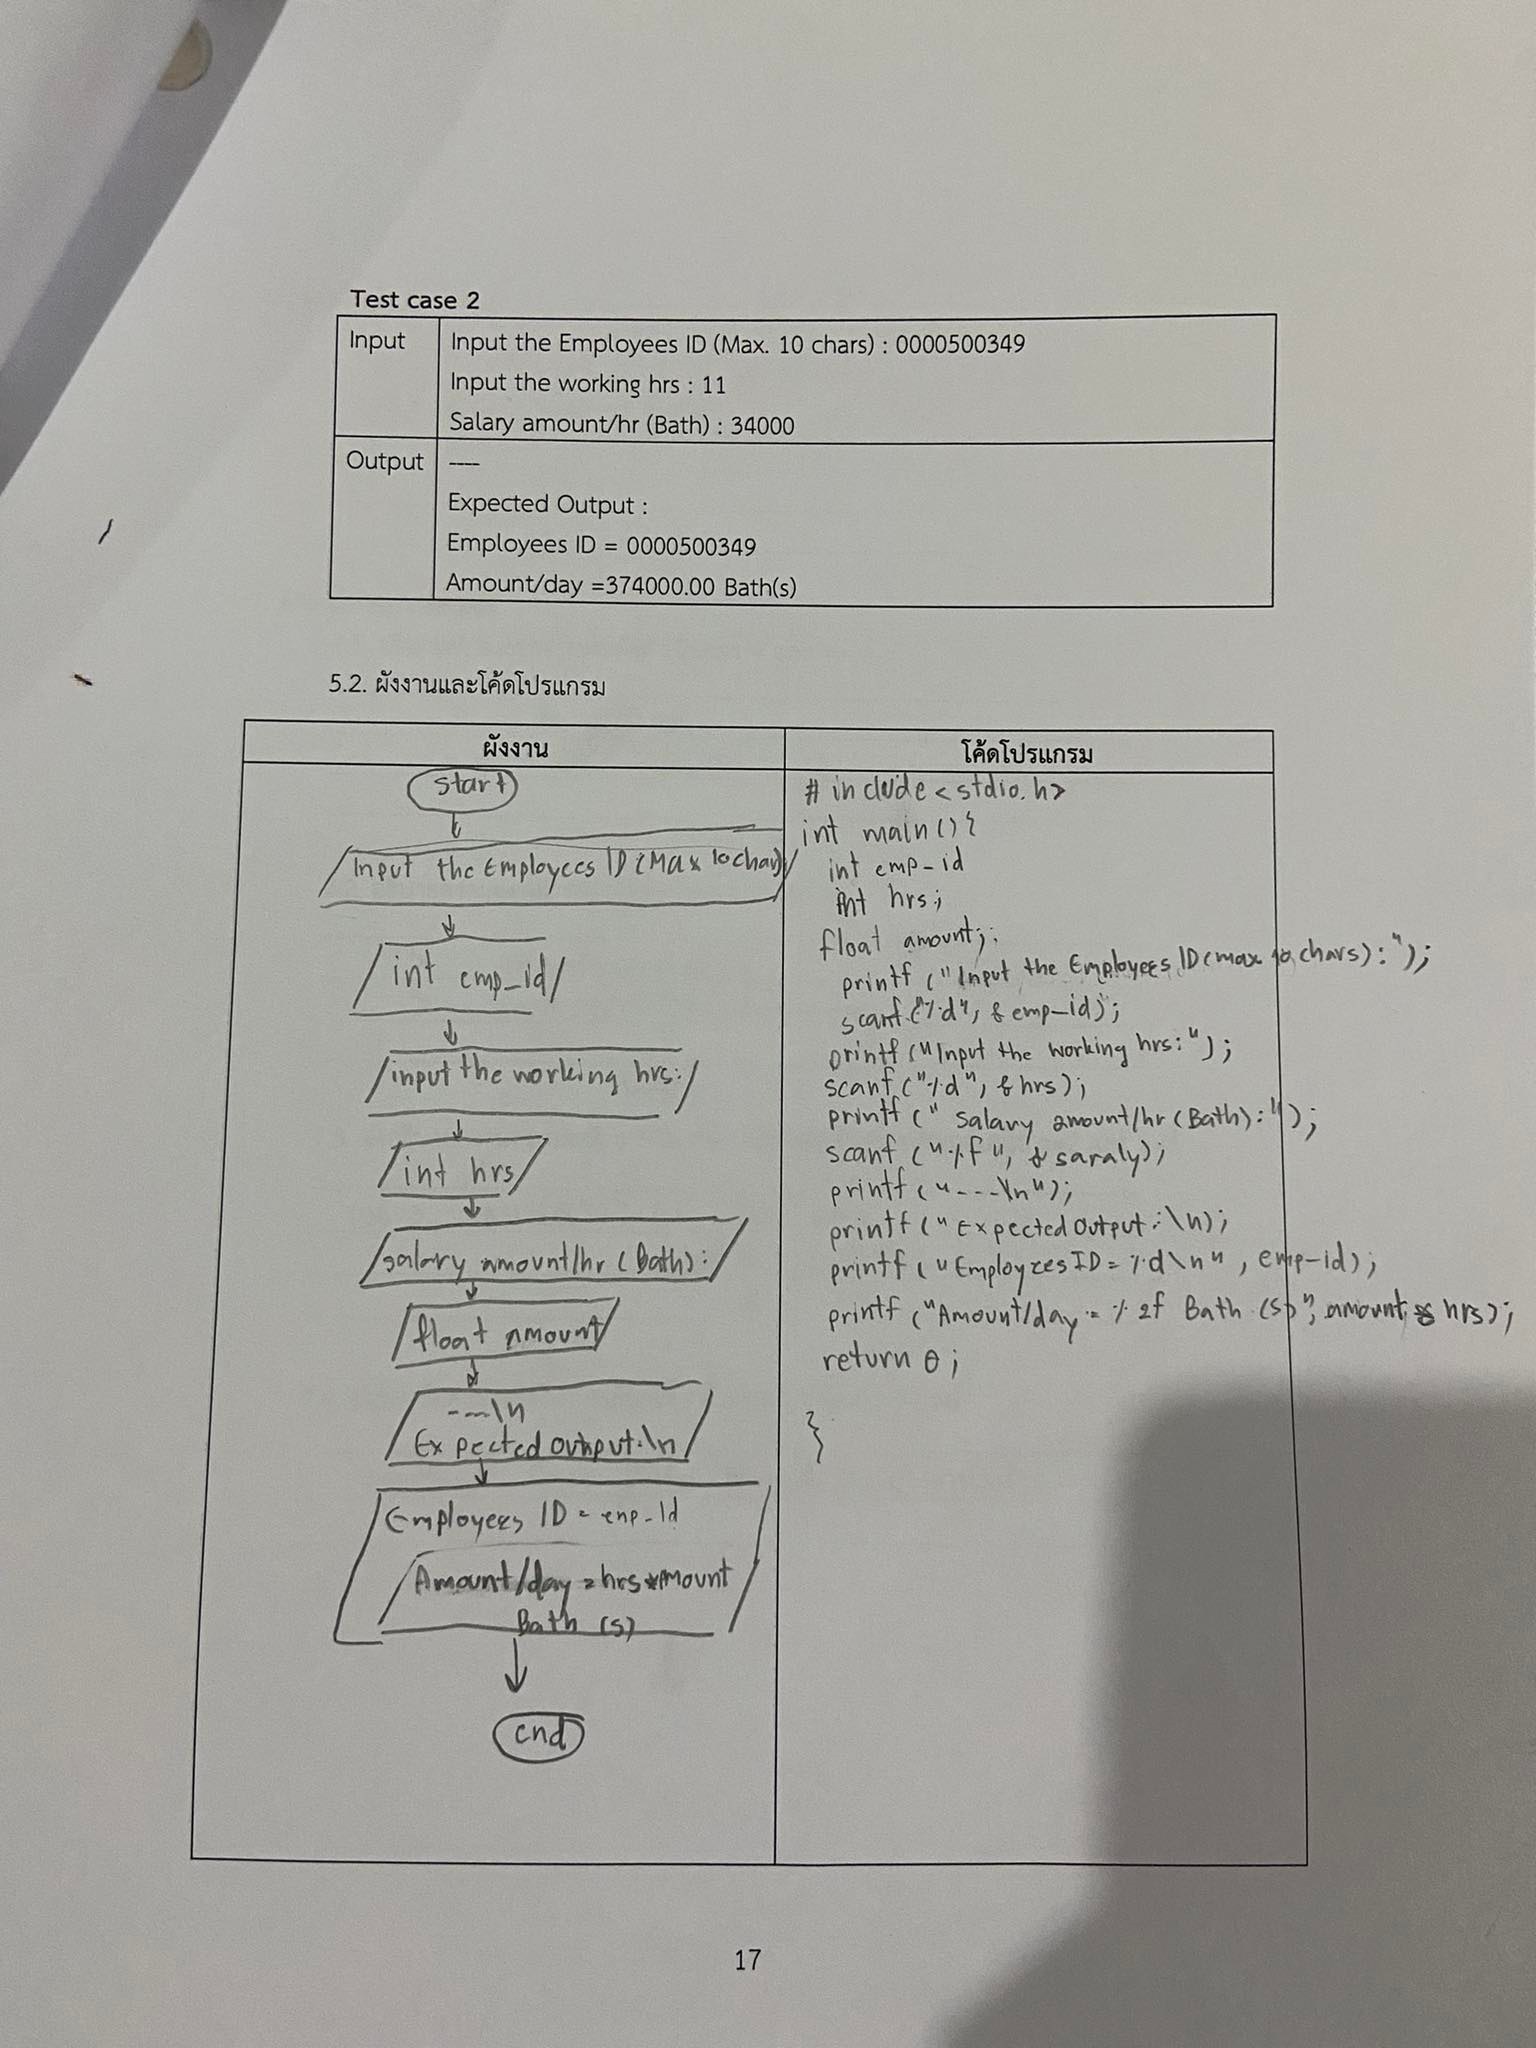 Test case 2
Input
Input the Employees ID (Max. 10 chars) : 0000500349
Input the working hrs : 11
Salary amount/hr (Bath) : 34000
Output
----
Expected Output :
Employees ID = 0000500349
Amount/day =374000.00 Bath(s)
5.2. ผังงานและโค้ดโปรแกรม
ผังงาน
start
Input the Employees ID (Max 10 char)
int emp_id
input the working hrs:
int hrs
salary amount/hr (Bath):
float amount
----\n
Expected output:\n
Employees ID = enp_id
Amount/day = hrs * Amount
Bath (s)
end
โค้ดโปรแกรม
# include <stdio.h>
int main() {
int emp_id
int hrs;
float amount;
printf ("Input the Employees ID (max 10 chars) : ");
scanf ("%d", & emp_id);
printf ("Input the working hrs:");
scanf ("%d", & hrs);
printf (" Salary amount/hr (Bath) : ");
scanf ("%f", & saraly);
printf ("----\n");
printf (" Expected Output : \n);
printf ("Employees ID = %d\n", emp-id);
printf ("Amount/day = % 2f Bath (s)", amount * hrs);
return 0;
}
17